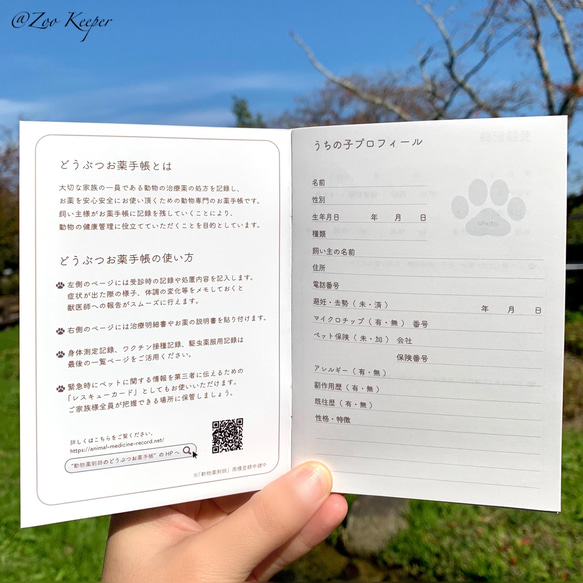 @Zoo Keeper
どうぶつお薬手帳とは
大切な家族の一員である動物の治療薬の処方を記録し、
お薬を安心安全にお使い頂くための動物専門のお薬手帳です。
飼い主様がお薬手帳に記録を残していくことにより、
動物の健康管理に役立てていただくことを目的としています。
どうぶつお薬手帳の使い方
左側のページには受診時の記録や処置内容を記入します。
症状が出た際の様子、体調の変化等をメモしておくと
獣医師への報告がスムーズに行えます。
右側のページには治療明細書やお薬の説明書を貼り付けます。
身体測定記録、ワクチン接種記録、駆虫薬服用記録は
最後の一覧ページをご活用ください。
緊急時にペットに関する情報を第三者に伝えるための
「レスキューカード」としてもお使いいただけます。
ご家族様全員が把握できる場所に保管しましょう。
詳しくはこちらをご覧ください。
https://animal-medicine-record.net/
"動物薬剤師のどうぶつお薬手帳" のHPへ
※「動物薬剤師」商標登録申請中
うちの子プロフィール
名前
性別
生年月日 年 月 日
種類
飼い主の名前
住所
電話番号
避妊・去勢（未・済） 年 月 日
マイクロチップ（有・無） 番号
ペット保険（未・加） 会社
保険番号
アレルギー（有・無）
副作用歴（有・無）
既往歴（有・無）
性格・特徴